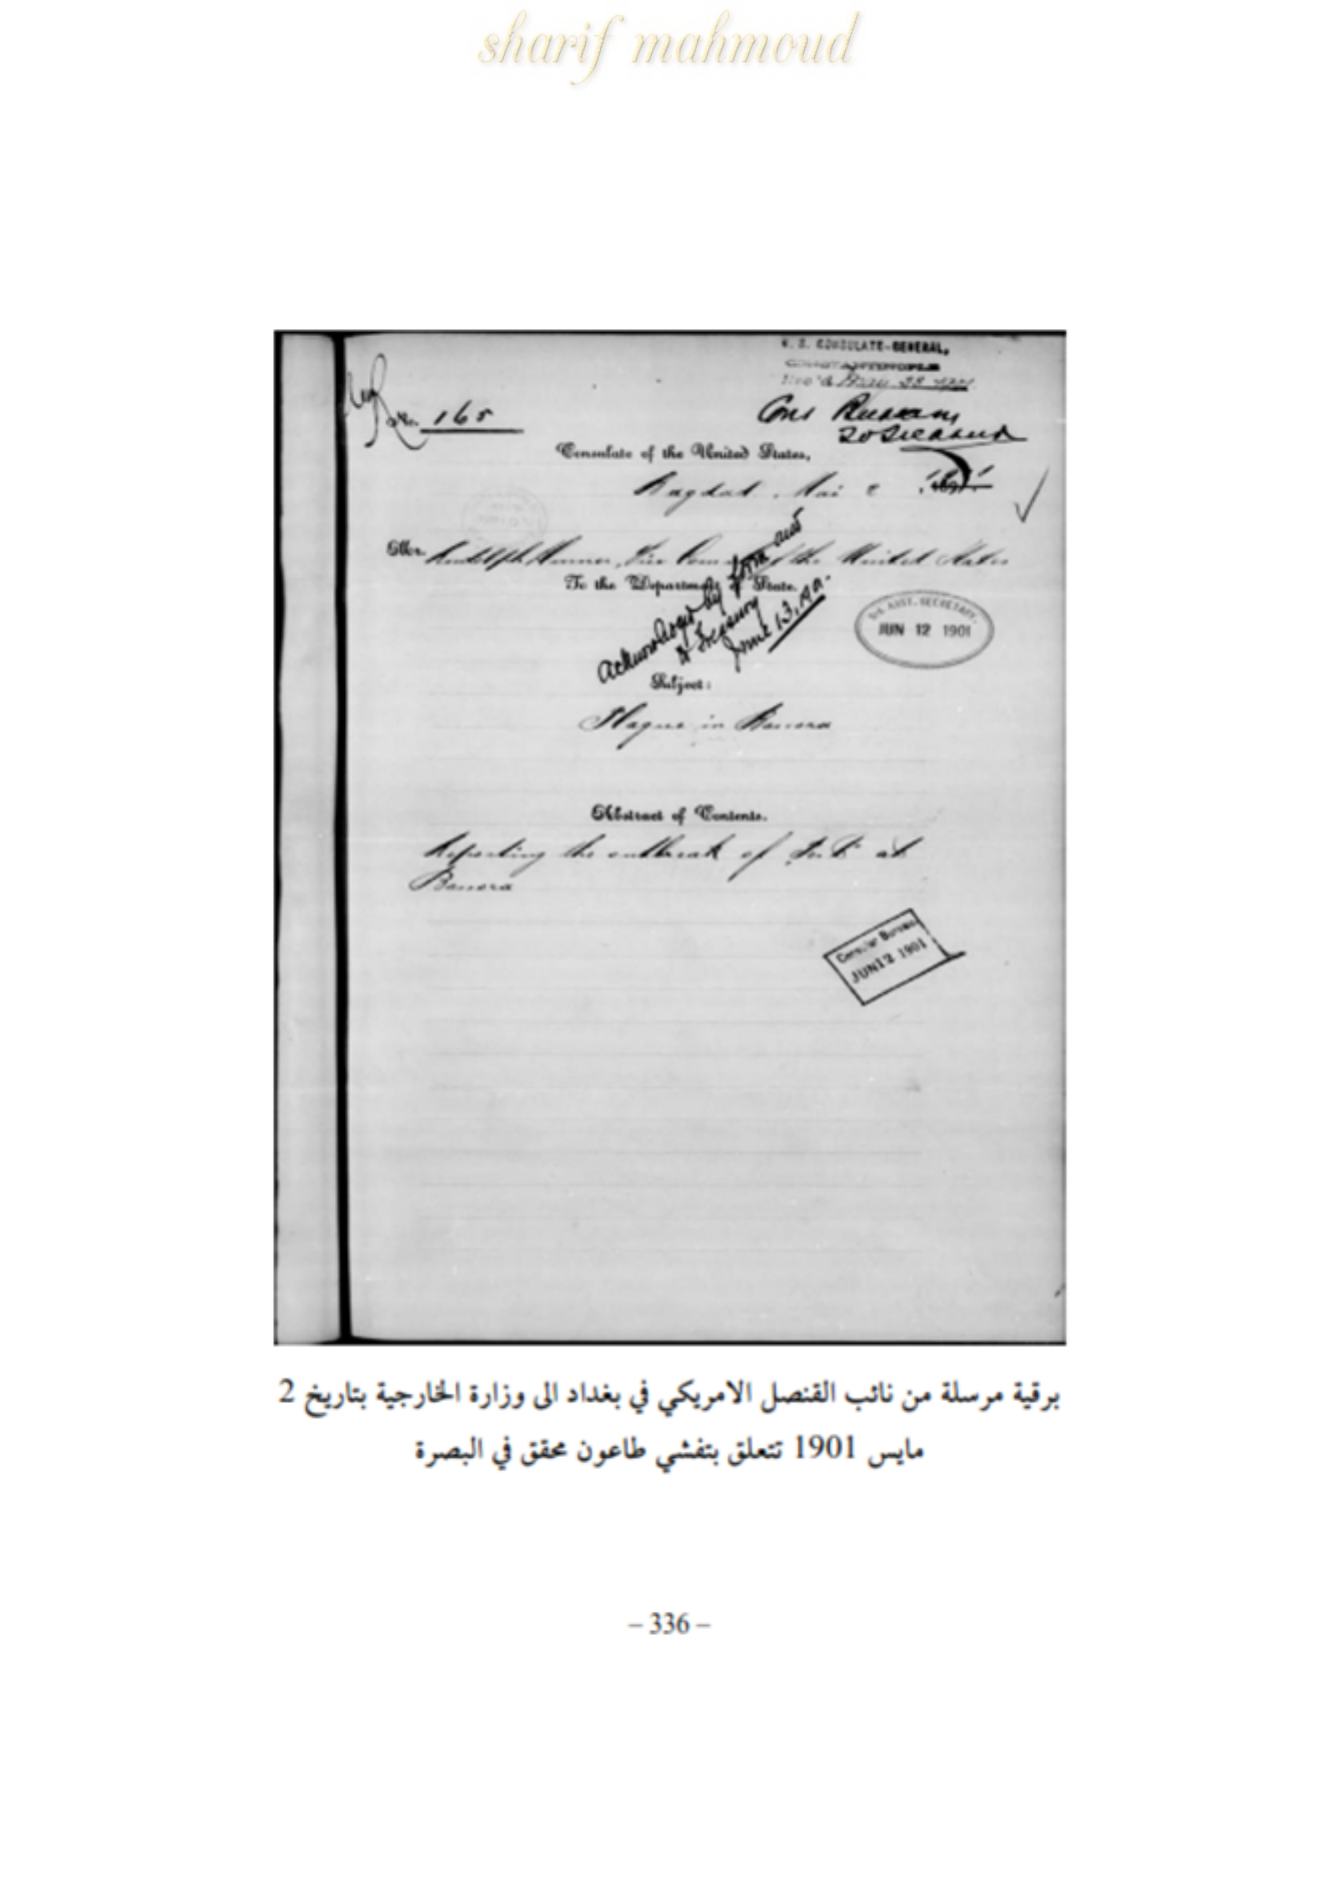 sharif mahmoud
U. S. CONSULATE-GENERAL,
CONSTANTINOPLE
Rec'd May
No. 165
Consulate of the United States,
Bagdad, Mai 2 1901
Mr. Rudolph Hurner, Vice Consul of the United States
To the Department of State.
Acknowledged by form and
to Treasury
June 13, 1901.
3rd ASST. SECRETARY.
JUN 12 1901
Subject:
Plague in Bassora
Abstract of Contents.
Reporting the outbreak of at
Bassora
Consular Bureau
JUN 12 1901
برقية مرسلة من نائب القنصل الامريكي في بغداد الى وزارة الخارجية بتاريخ 2
مايس 1901 تتعلق بتفشي طاعون محقق في البصرة
– 336 –